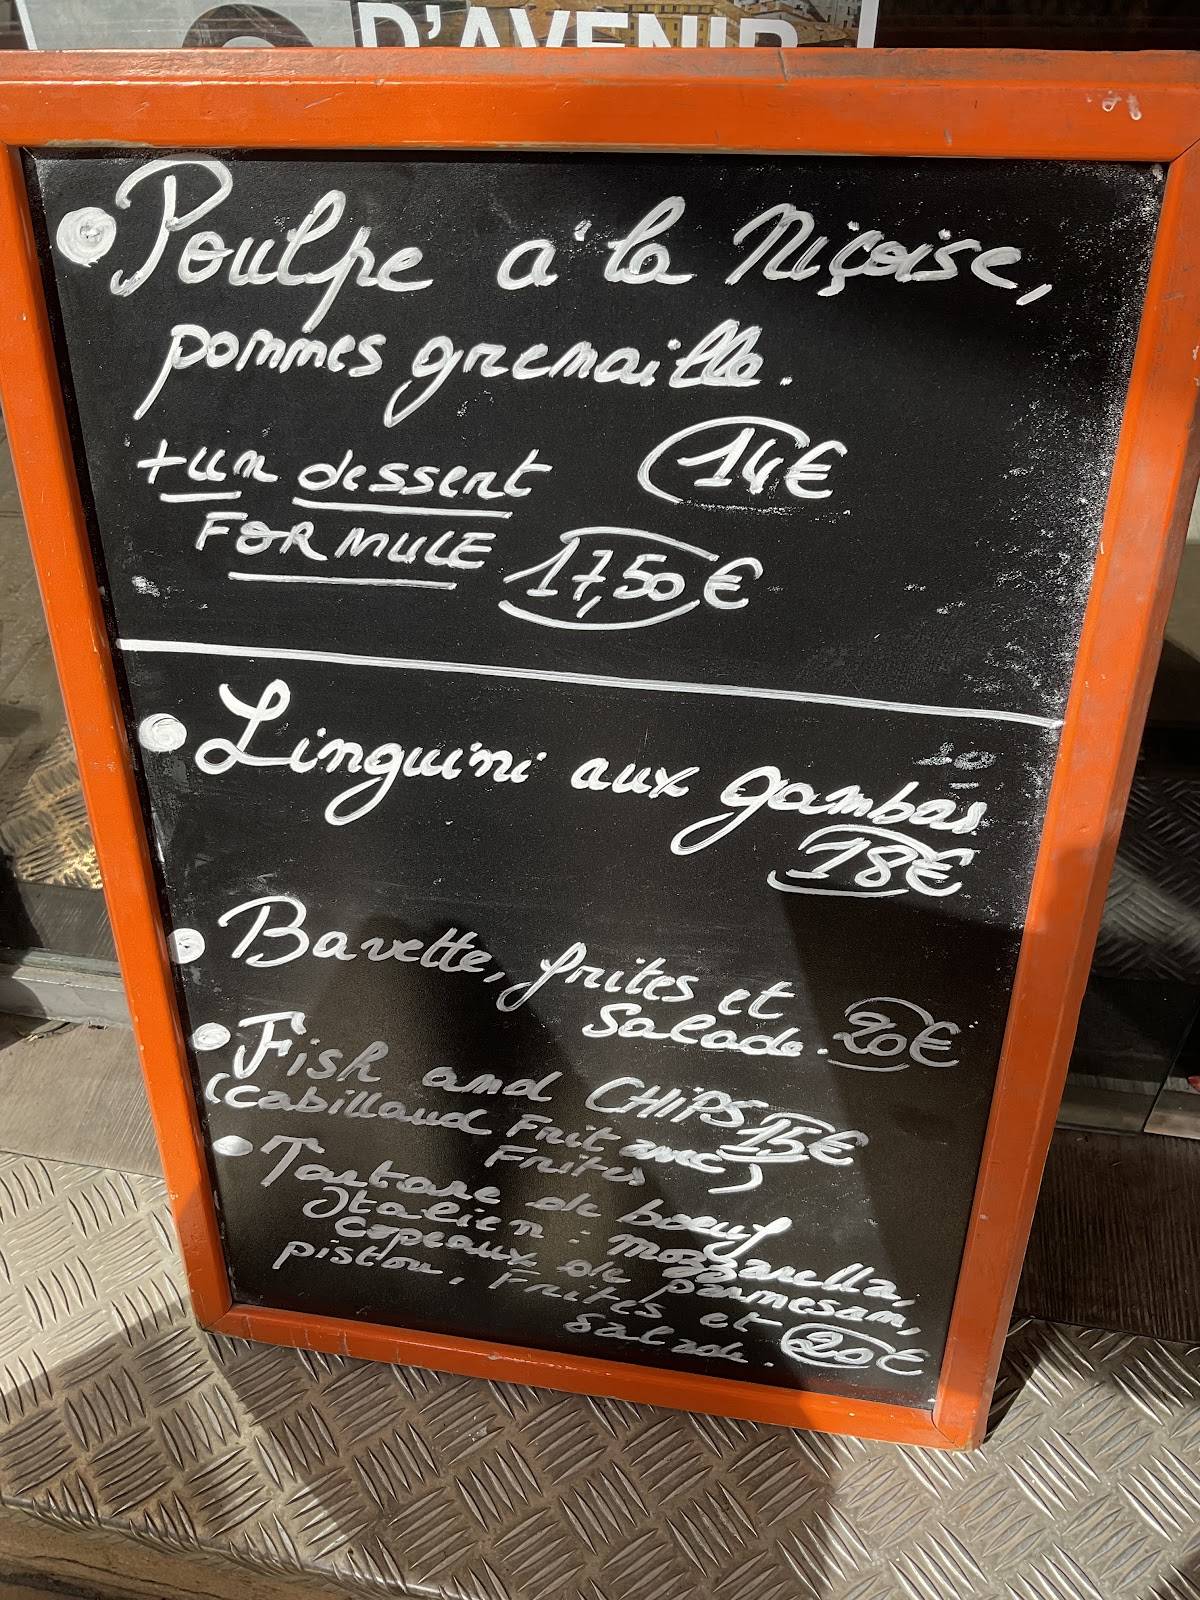 D'AVENIR
Poulpe à la Niçoise,
pommes grenaille.
+ un dessert 14€
FORMULE 17,50€
Linguini aux gambas
18€
Bavette, frites et
Salade. 20€
Fish and CHIPS 15€
(Cabillaud Frit avec
Frites)
Tartare de boeuf
Italien : mozzarella,
copeaux de parmesan,
pistou, Frites et
salade. 20€